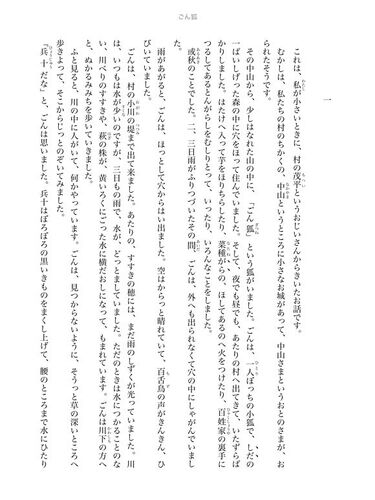 ごん狐
一
これは、私が小さいときに、村の茂平というおじいさんからきいたお話です。
むかしは、私たちの村のちかくの、中山というところに小さなお城があって、中山さまというおとのさまが、お
られたそうです。
その中山から、少しはなれた山の中に、「ごん狐」という狐がいました。ごんは、一人ぼっちの小狐で、しだの
一ぱいしげった森の中に穴をほって住んでいました。そして、夜でも昼でも、あたりの村へ出てきて、いたずらば
かりしました。はたけへ入って芋をほりちらしたり、菜種がらの、ほしてあるのへ火をつけたり、百姓家の裏手に
つるしてあるとんがらしをむしりとって、いったり、いろんなことをしました。
或秋のことでした。二、三日雨がふりつづいたその間、ごんは、外へも出られなくて穴の中にしゃがんでいました。
雨があがると、ごんは、ほっとして穴からはい出ました。空はからっと晴れていて、百舌鳥の声がきんきん、ひ
びいていました。
ごんは、村の小川の堤まで出て来ました。あたりの、すすきの穂には、まだ雨のしずくが光っていました。川
は、いつもは水が少いのですが、三日もの雨で、水が、どっとましていました。ただのときは水につかることのな
い、川べりのすすきや、萩の株が、黄いろくにごった水に横だおしになって、もまれています。ごんは川下の方へ
と、ぬかるみみちを歩いていきました。
ふと見ると、川の中に人がいて、何かやっています。ごんは、見つからないように、そうっと草の深いところへ
歩きよって、そこからじっとのぞいてみました。
「兵十だな」と、ごんは思いました。兵十はぼろぼろの黒いきものをまくし上げて、腰のところまで水にひたり